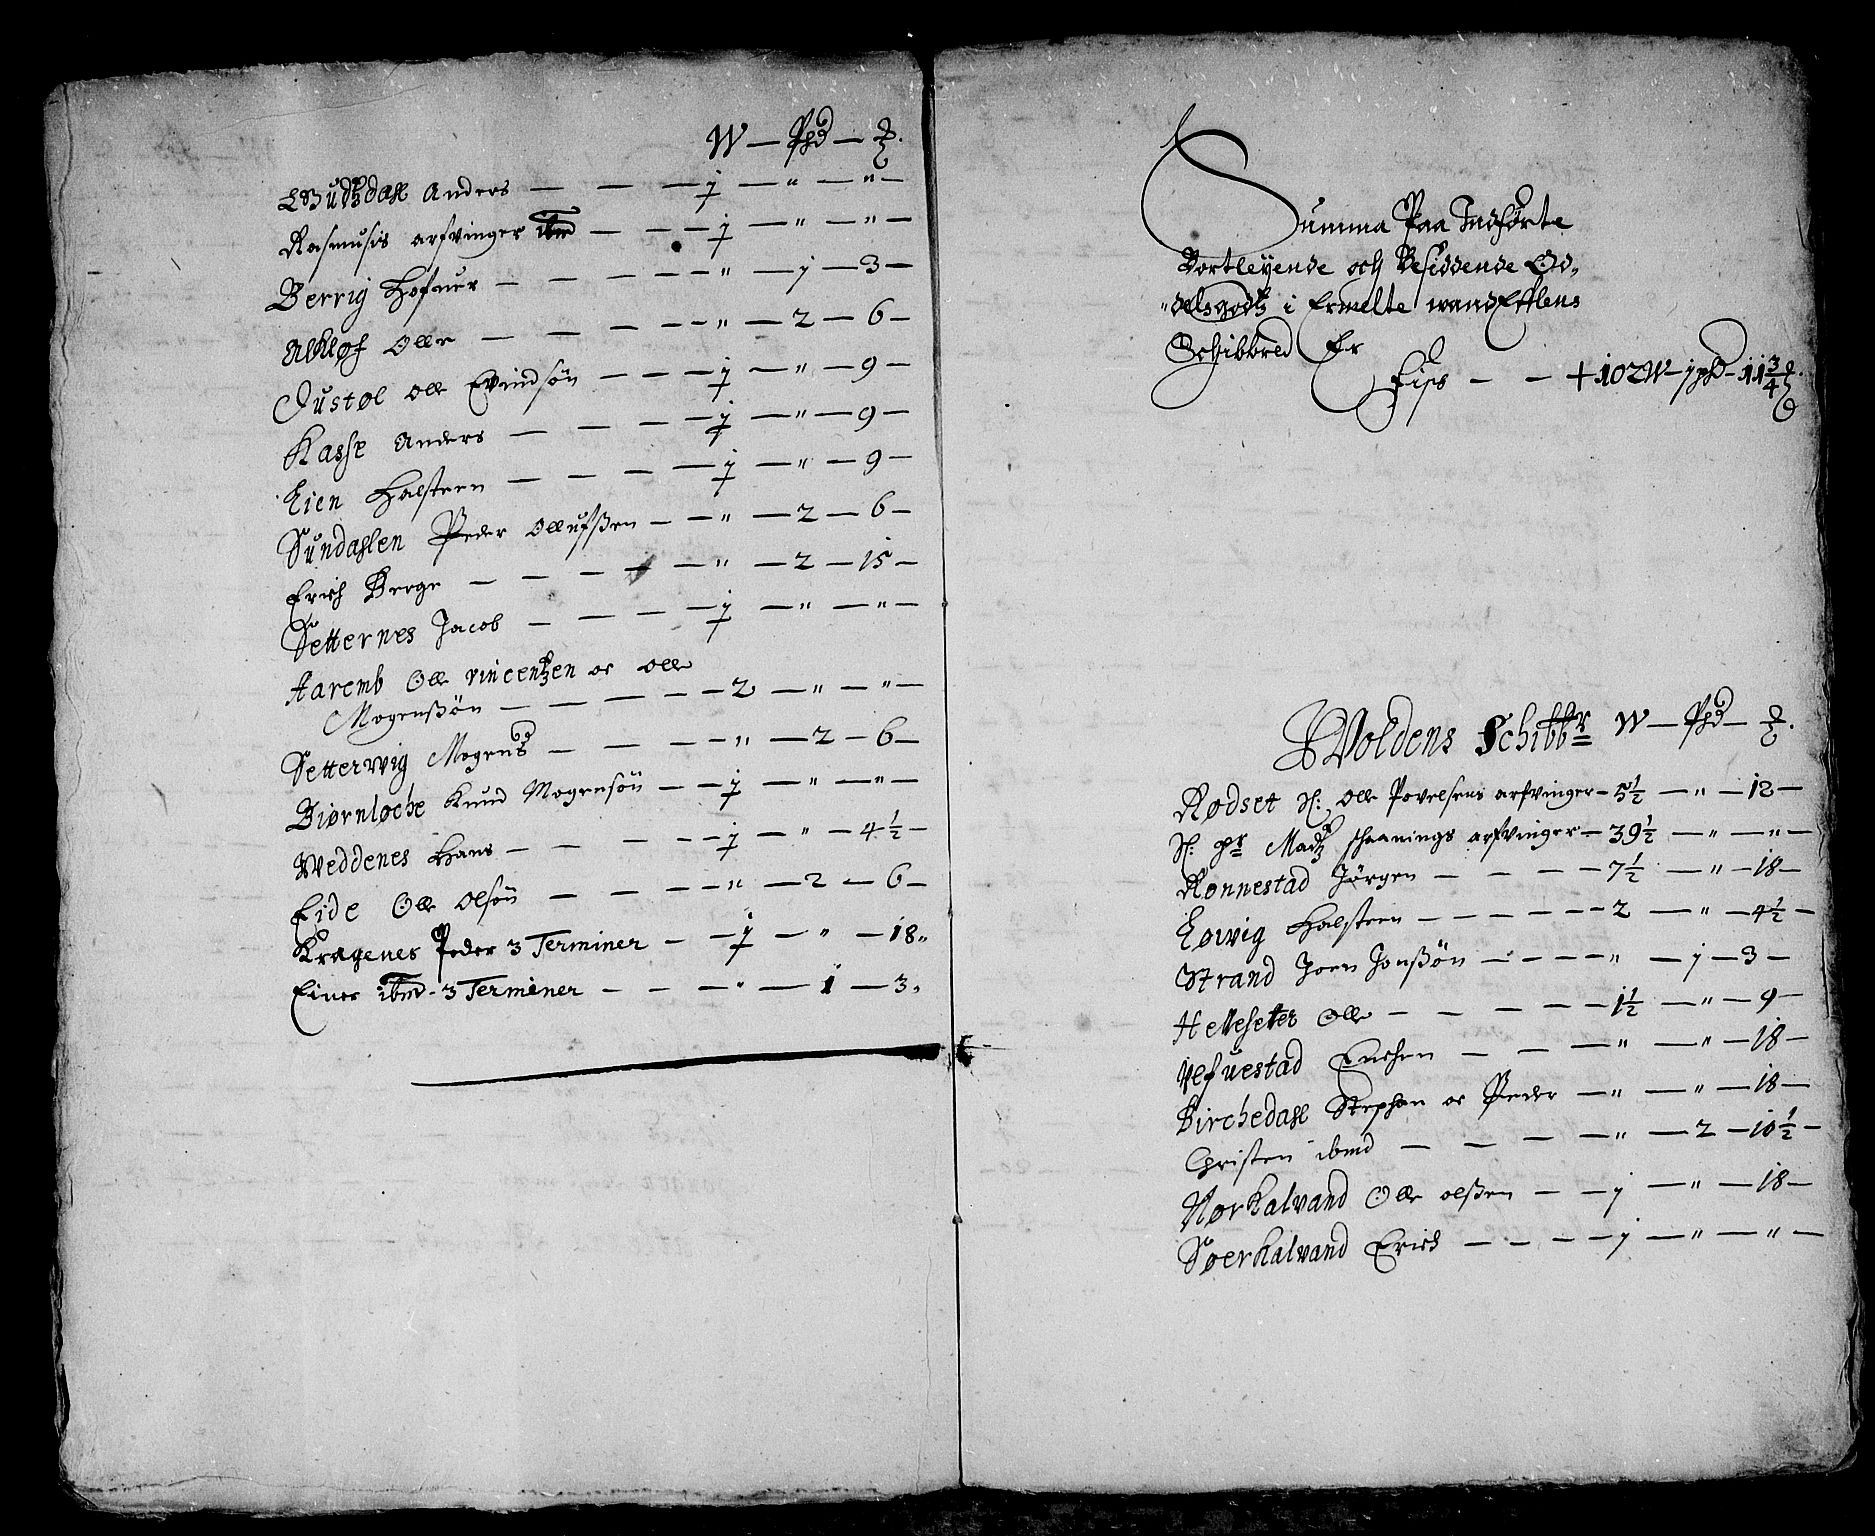 W — Phd — ℔.
Gudtzdahl Anders — — — j — " — " —
Rasmuses arfvinger ibmd — — — j — " — " —
Berrig Hofuer — — — — — " — j — 3 —
Alkløf Olle — — — — " — 2 — 6 —
Justøl Olle Evindsøn — — — j — " — 9 —
Kasse Anders — — — — j — " — 9 —
Lien Halsteen — — — — j — " — 9 —
Sundahlen Peder Ollufssen — — " — 2 — 6 —
Erich Berge — — — — — " — 2 — 15 —
Setternes Jacob — — — — j — " — " —
Aaremb Olle vincentzen oc Olle
Mogenssøn — — — — — 2 — " — " —
Setterwig Mogens — — — — " — 2 — 6 —
Biørnløche Knud Mogensøn — — j — " — " —
Weddenes Hans — — — — j — " — 4½ —
Eide Olle Olsøn — — — — " — 2 — 6 —
Kragenes Peder 3 Terminer — — j — " — 18 "
Einer ibmd - 3 Terminer — — — " — 1 — 3 "
Summa Paa Indførte
Bortleyende och Besiddende Od-
"delsgodtz i Ermelte wandElflens
Schibbred Er
Fisk — — + 102 W — j phd — 11¾ ℔.
Woldens Schibbr W — Phd — ℔.
Rødset H: Olle Povelsens arfvinger — 5½ — " — 12 —
H: pr Madtz schaanings arfvinger — 39½ — " — " —
Rønnestad Jørgen — — — — 7½ — " — 18 —
Løvig Halsteen — — — — — 2 — " — 4½ —
Strand Joen Jonssøn — — — — " — j — 3 —
Helleseter Olle — — — — — 1½ — " — 9 —
Vefuestad Knehen — — — " — " — 18 —
Birchedahl Stephen oc Peder — " — " — 18 —
Christen ibmd — — — — — " — 2 — 10½ —
Nørkalvand Olle olssen — — j — " — 18 —
Søerkalvand Erich — — — — j — " — " —